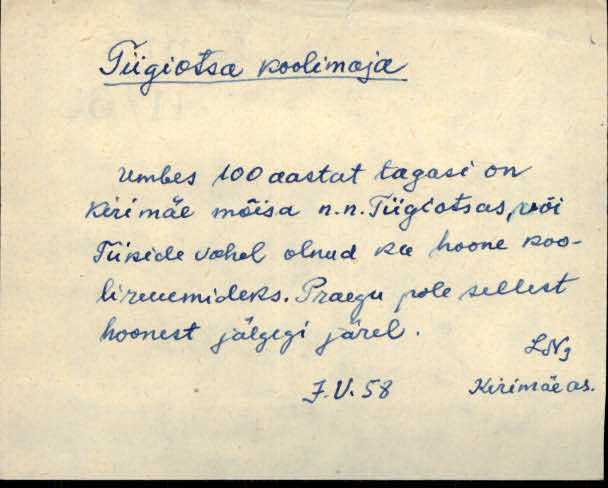 Tiigiotsa koolimaja
Umbes 100 aastat tagasi on
Kirimäe mõisa n.n. Tiigiotsas, või
Tiikide vahel olnud ka hoone koo-
liruumideks. Praegu pole sellest
hoonest jälgegi järel.
7.V.58 Kirimäe as.